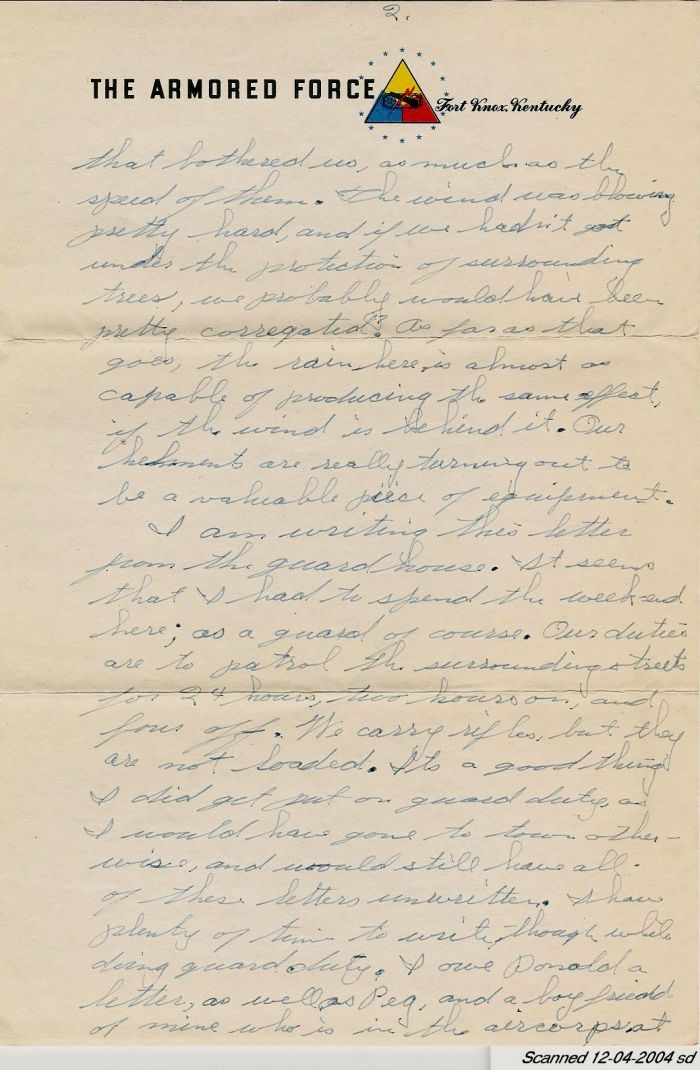 2.
THE ARMORED FORCE
Fort Knox, Kentucky
that bothered us, as much as the
speed of them. The wind was blowing
pretty hard, and if we hadn't got
under the protection of surrounding
trees, we probably would have been
pretty corregated. As far as that
goes, the rain here, is almost as
capable of producing the same effect,
if the wind is behind it. Our
helments are really turning out to
be a valuable piece of equipment.
I am writing this letter
from the guard house. It seems
that I had to spend the week-end
here; as a guard of course. Our duties
are to patrol the surrounding streets
for 24 hours, two hours on, and
four off. We carry rifles, but they
are not loaded. Its a good thing
I did get put on guard duty, as
I would have gone to town other-
wise, and would still have all
of these letters unwritten. I have
plenty of time to write, though while
doing guard duty. I owe Donald a
letter, as well as Peg, and a boy friend
of mine who is in the aircorps at
Scanned 12-04-2004 sd